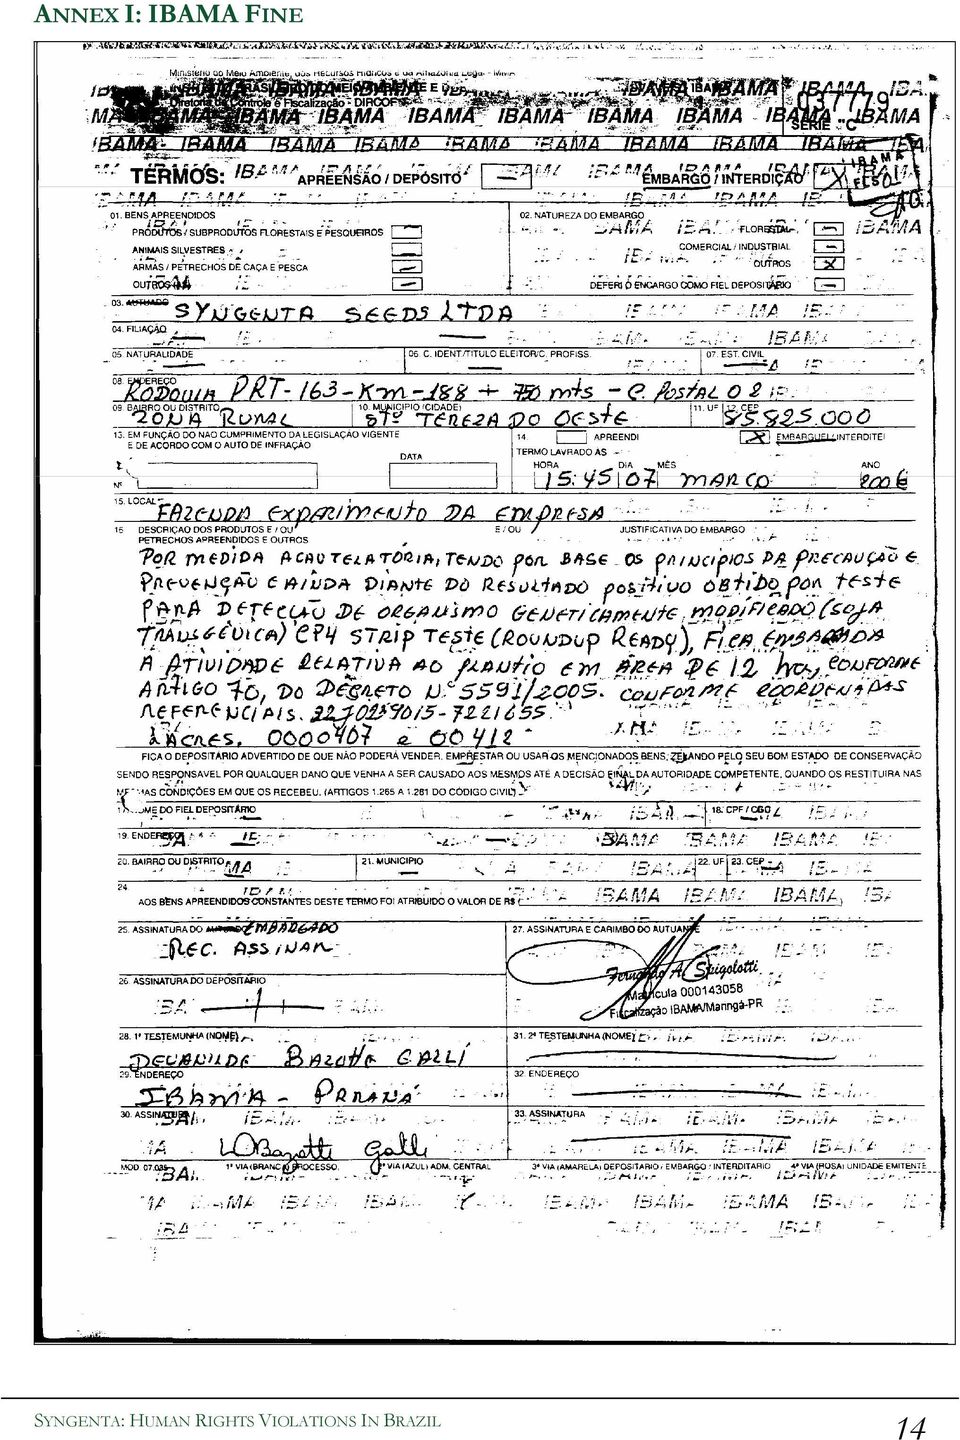 ANNEX I: IBAMA FINE
Diretoria de Controle e Fiscalização - DIRCOF
037779
SÉRIE "C"
TERMOS: APREENSÃO / DEPÓSITO EMBARGO / INTERDIÇÃO X
01. BENS APREENDIDOS 02. NATUREZA DO EMBARGO
PRODUTOS / SUBPRODUTOS FLORESTAIS E PESQUEIROS FLORESTAL
ANIMAIS SILVESTRES COMERCIAL / INDUSTRIAL
ARMAS / PETRECHOS DE CAÇA E PESCA OUTROS X
OUTROS DEFERI O ENCARGO COMO FIEL DEPOSITÁRIO
03. AUTUADO SYNGENTA SEEDS LTDA
04. FILIAÇÃO
05. NATURALIDADE 06. C. IDENT/TITULO ELEITOR/C. PROFISS. 07. EST. CIVIL
08. ENDEREÇO RODOVIA PRT-163-Km-188 + 750 mts - C. POSTAL 02
09. BAIRRO OU DISTRITO ZONA RURAL 10. MUNICIPIO (CIDADE) STª TEREZA DO OESTE 11. UF 12. CEP 85.825.000
13. EM FUNÇÃO DO NÃO CUMPRIMENTO DA LEGISLAÇÃO VIGENTE 14. APREENDI X EMBARGUEI INTERDITEI
E DE ACORDO COM O AUTO DE INFRAÇÃO
DATA TERMO LAVRADO ÀS
HORA DIA MÊS ANO
Nº 15:45 07 MARCO 2006
15. LOCAL FAZENDA EXPERIMENTO DA EMPRESA
16 DESCRIÇÃO DOS PRODUTOS E / OU E / OU JUSTIFICATIVA DO EMBARGO
PETRECHOS APREENDIDOS E OUTROS
POR MEDIDA ACAUTELATÓRIA, TENDO POR BASE OS PRINCIPIOS DA PRECAUÇÃO E
PREVENÇÃO E AINDA DIANTE DO RESULTADO POSITIVO OBTIDO POR TESTE
PARA DETECÇÃO DE ORGANISMO GENETICAMENTE MODIFICADO (SOJA
TRANSGÊNICA) CP4 STRIP TESTE (ROUNDUP READY), FICA EMBARGADA
A ATIVIDADE RELATIVA AO PLANTIO EM AREA DE 12 ha, CONFORME
ARTIGO 70, DO DECRETO N.º 5591/2005. CONFORME COORDENADAS
REFERENCIAIS. 22J0239015-7221655.
LACRES. 0000407 a 00412
FICA O DEPOSITÁRIO ADVERTIDO DE QUE NÃO PODERÁ VENDER, EMPRESTAR OU USAR OS MENCIONADOS BENS, ZELANDO PELO SEU BOM ESTADO DE CONSERVAÇÃO
SENDO RESPONSAVEL POR QUALQUER DANO QUE VENHA A SER CAUSADO AOS MESMOS ATÉ A DECISÃO FINAL DA AUTORIDADE COMPETENTE, QUANDO OS RESTITUIRA NAS
MESMAS CONDIÇÕES EM QUE OS RECEBEU. (ARTIGOS 1.265 A 1.281 DO CÓDIGO CIVIL)
NOME DO FIEL DEPOSITÁRIO 18. CPF / CGC
19. ENDEREÇO
20. BAIRRO OU DISTRITO 21. MUNICIPIO 22. UF 23. CEP
24.
AOS BENS APREENDIDOS CONSTANTES DESTE TERMO FOI ATRIBUIDO O VALOR DE R$
25. ASSINATURA DO AUTUADO EMBARGADO 27. ASSINATURA E CARIMBO DO AUTUANTE
REC. ASSINAR
Fernando A. Spigolotti
26. ASSINATURA DO DEPOSITÁRIO
Matrícula 000143058
Fiscalização IBAMA/Maringá-PR
28. 1ª TESTEMUNHA (NOME) 31. 2ª TESTEMUNHA (NOME)
DEVANILDE BAZOTTE GALLI
29. ENDEREÇO 32. ENDEREÇO
IBAMA - PARANÁ
30. ASSINATURA 33. ASSINATURA
LDBazotti Galli
MOD. 07.035 1ª VIA (BRANCA) PROCESSO. 2ª VIA (AZUL) ADM. CENTRAL 3ª VIA (AMARELA) DEPOSITARIO / EMBARGO / INTERDITARIO 4ª VIA (ROSA) UNIDADE EMITENTE
SYNGENTA: HUMAN RIGHTS VIOLATIONS IN BRAZIL 14